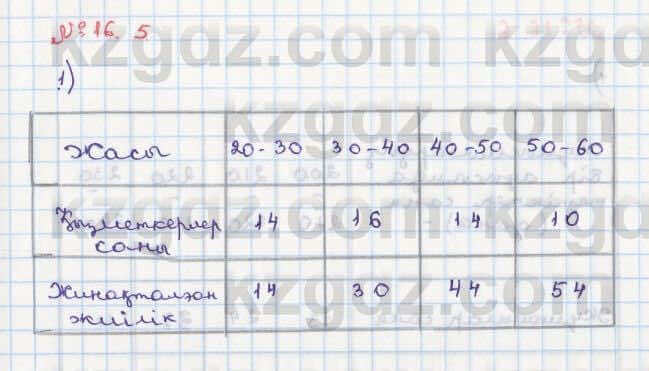 № 16. 5
1)
Жасы 20-30 30-40 40-50 50-60
Қызметкерлер саны 14 16 14 10
Жинақталған жиілік 14 30 44 54
kzgdz.com